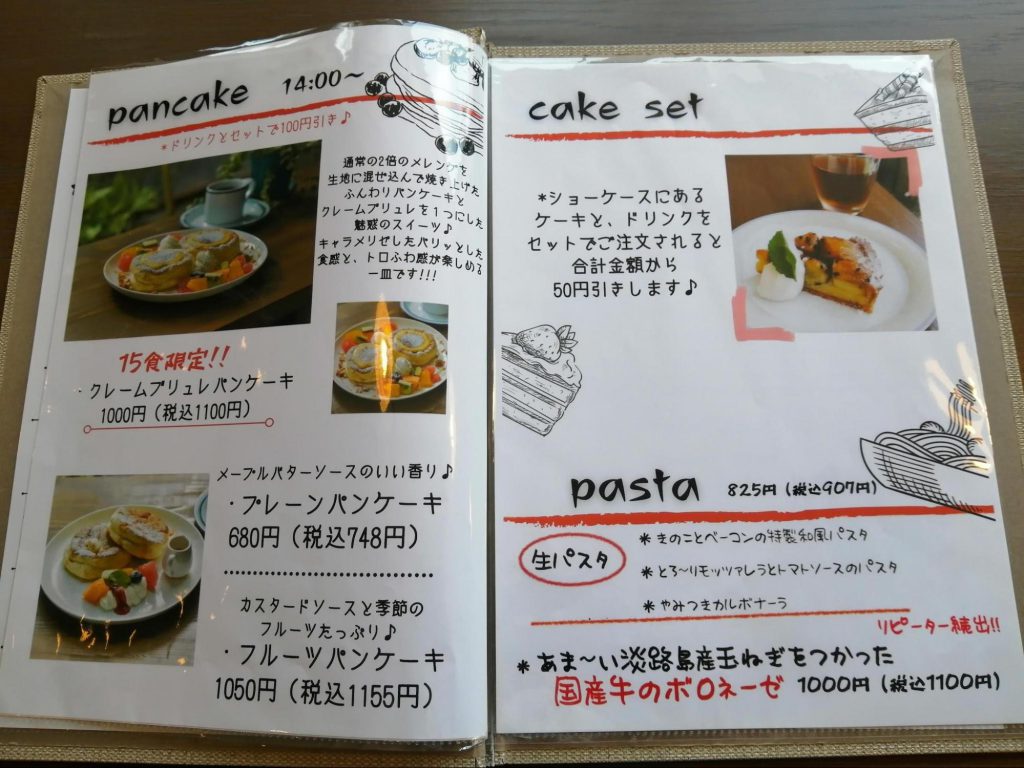 pancake 14:00～
*ドリンクとセットで100円引き♪
通常の2倍のメレンゲを
生地に混ぜ込んで焼き上げた
ふんわりパンケーキと
クレームブリュレを1つにした
魅惑のスイーツ♪
キャラメリゼしたパリッとした
食感と、トロふわ感が楽しめる
一皿です!!!
15食限定!!
・クレームブリュレパンケーキ
1000円（税込1100円）
メープルバターソースのいい香り♪
・プレーンパンケーキ
680円（税込748円）
カスタードソースと季節の
フルーツたっぷり♪
・フルーツパンケーキ
1050円（税込1155円）
cake set
*ショーケースにある
ケーキと、ドリンクを
セットでご注文されると
合計金額から
50円引きします♪
pasta 825円（税込907円）
生パスタ
*きのことベーコンの特製和風パスタ
*とろ～りモッツァレラとトマトソースのパスタ
*やみつきカルボナーラ
リピーター続出!!
*あま～い淡路島産玉ねぎをつかった
国産牛のボロネーゼ 1000円（税込1100円）